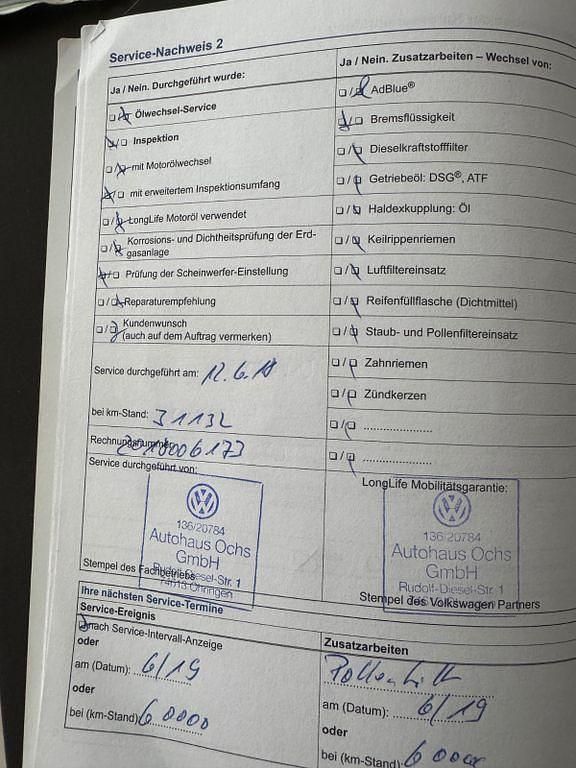 Service-Nachweis 2
Ja / Nein. Durchgeführt wurde:
☐/☒ Ölwechsel-Service
☒/☐ Inspektion
☐/☒ mit Motorölwechsel
☒/☐ mit erweitertem Inspektionsumfang
☐/☒ LongLife Motoröl verwendet
☐/☒ Korrosions- und Dichtheitsprüfung der Erd-
gasanlage
☒/☐ Prüfung der Scheinwerfer-Einstellung
☐/☒ Reparaturempfehlung
☐/☒ Kundenwunsch
(auch auf dem Auftrag vermerken)
Service durchgeführt am: 12.6.18
bei km-Stand: 31132
Rechnungsnummer: 2018006173
Service durchgeführt von:
136/20784
Autohaus Ochs
GmbH
Rudolf-Diesel-Str. 1
74613 Öhringen
Stempel des Fachbetriebs
Ja / Nein. Zusatzarbeiten – Wechsel von:
☐/☒ AdBlue®
☒/☐ Bremsflüssigkeit
☐/☒ Dieselkraftstofffilter
☐/☒ Getriebeöl: DSG®, ATF
☐/☒ Haldexkupplung: Öl
☐/☒ Keilrippenriemen
☐/☒ Luftfiltereinsatz
☐/☒ Reifenfüllflasche (Dichtmittel)
☐/☒ Staub- und Pollenfiltereinsatz
☐/☒ Zahnriemen
☐/☒ Zündkerzen
☐/☒ ......................
☐/☒ ......................
LongLife Mobilitätsgarantie:
136/20784
Autohaus Ochs
GmbH
Rudolf-Diesel-Str. 1
Stempel des Volkswagen Partners
Ihre nächsten Service-Termine
Service-Ereignis
☒ nach Service-Intervall-Anzeige
oder
am (Datum): 6/19
oder
bei (km-Stand) 60000
Zusatzarbeiten
am (Datum): 6/19
oder
bei (km-Stand)